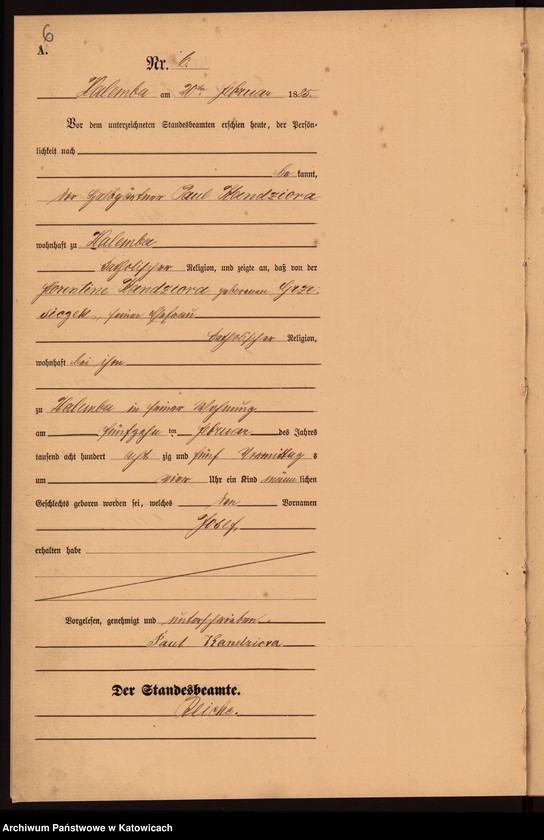 6
A.
Nr. 6.
Halemba am 20ten Februar 1885.
Vor dem unterzeichneten Standesbeamten erschien heute, der Persön-
lichkeit nach
be kannt,
der Paul Kandziora
wohnhaft zu Halemba
katholischer Religion, und zeigte an, daß von der
Florentine Kandziora geborenen Grze-
siczek, seiner Ehefrau
katholischer Religion,
wohnhaft bei ihm
zu Halemba in seiner Wohnung
am fünfzehn ten Februar des Jahres
tausend acht hundert acht zig und fünf Vormittag s
um vier Uhr ein Kind männ lichen
Geschlechts geboren worden sei, welches den Vornamen
Josef
erhalten habe
Vorgelesen, genehmigt und unterschrieben.
Paul Kandziora
Der Standesbeamte.
Archiwum Państwowe w Katowicach